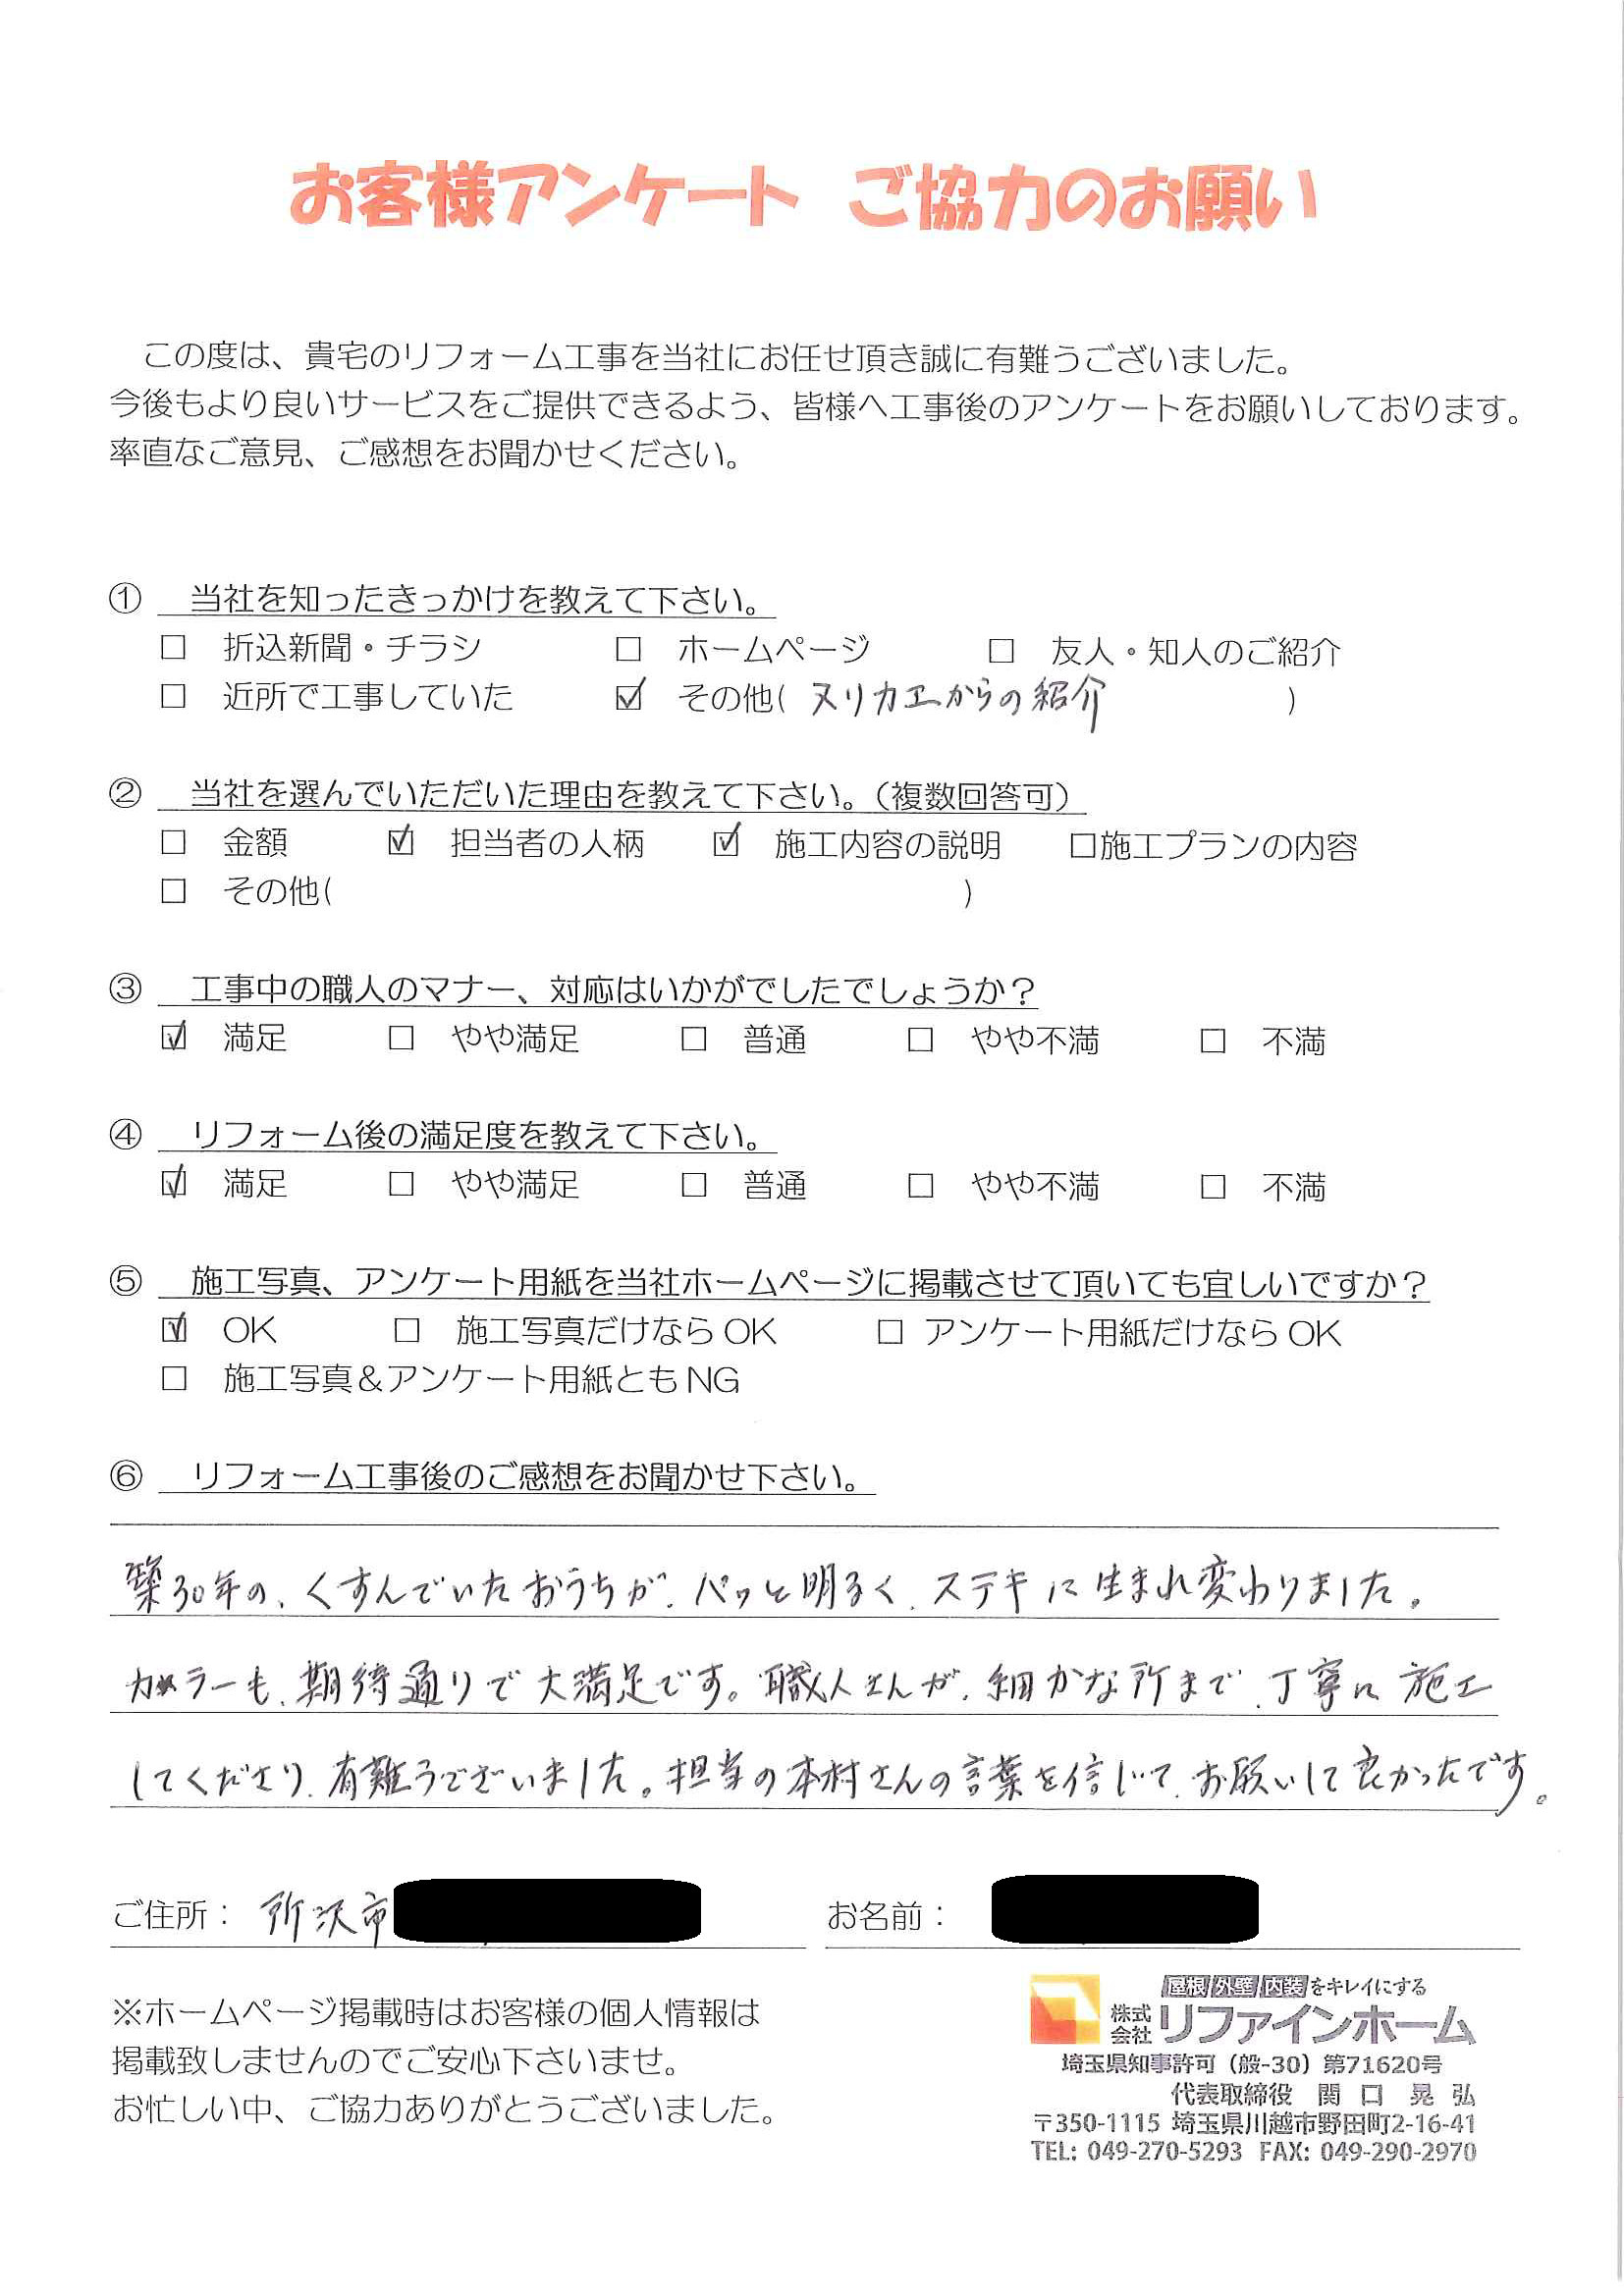 お客様アンケート ご協力のお願い
この度は、貴宅のリフォーム工事を当社にお任せ頂き誠に有難うございました。
今後もより良いサービスをご提供できるよう、皆様へ工事後のアンケートをお願いしております。
率直なご意見、ご感想をお聞かせください。
① 当社を知ったきっかけを教えて下さい。
□ 折込新聞・チラシ □ ホームページ □ 友人・知人のご紹介
□ 近所で工事していた ☑ その他( ヌリカエからの紹介 )
② 当社を選んでいただいた理由を教えて下さい。（複数回答可）
□ 金額 ☑ 担当者の人柄 ☑ 施工内容の説明 □施工プランの内容
□ その他( )
③ 工事中の職人のマナー、対応はいかがでしたでしょうか？
☑ 満足 □ やや満足 □ 普通 □ やや不満 □ 不満
④ リフォーム後の満足度を教えて下さい。
☑ 満足 □ やや満足 □ 普通 □ やや不満 □ 不満
⑤ 施工写真、アンケート用紙を当社ホームページに掲載させて頂いても宜しいですか？
☑ OK □ 施工写真だけならOK □ アンケート用紙だけならOK
□ 施工写真＆アンケート用紙ともNG
⑥ リフォーム工事後のご感想をお聞かせ下さい。
築30年の、くすんでいたおうちが、パッと明るく、ステキに生まれ変わりました。
カラーも、期待通りで大満足です。職人さんが、細かな所まで、丁寧に施工
してくださり、有難うございました。担当の本村さんの言葉を信じて、お願いして良かったです。
ご住所： 所沢市 お名前：
※ホームページ掲載時はお客様の個人情報は
掲載致しませんのでご安心下さいませ。
お忙しい中、ご協力ありがとうございました。
屋根 外壁 内装 をキレイにする
株式会社 リファインホーム
埼玉県知事許可（般-30）第71620号
代表取締役 関口 晃弘
〒350-1115 埼玉県川越市野田町2-16-41
TEL: 049-270-5293 FAX: 049-290-2970